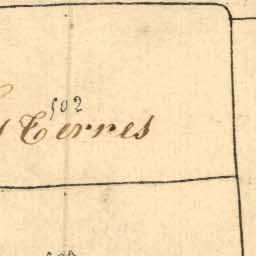 502
Terres